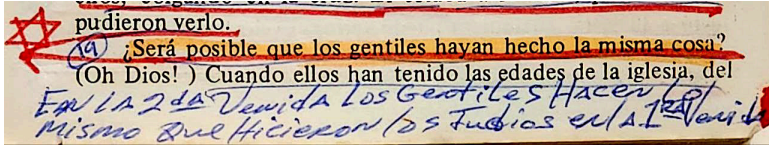 pudieron verlo.
19 ¿Será posible que los gentiles hayan hecho la misma cosa?
(Oh Dios! ) Cuando ellos han tenido las edades de la iglesia, del
EN LA 2da Venida LOS GentiLes HAcen Lo
mismo que Hicieron los Judios en LA 1ra Venida